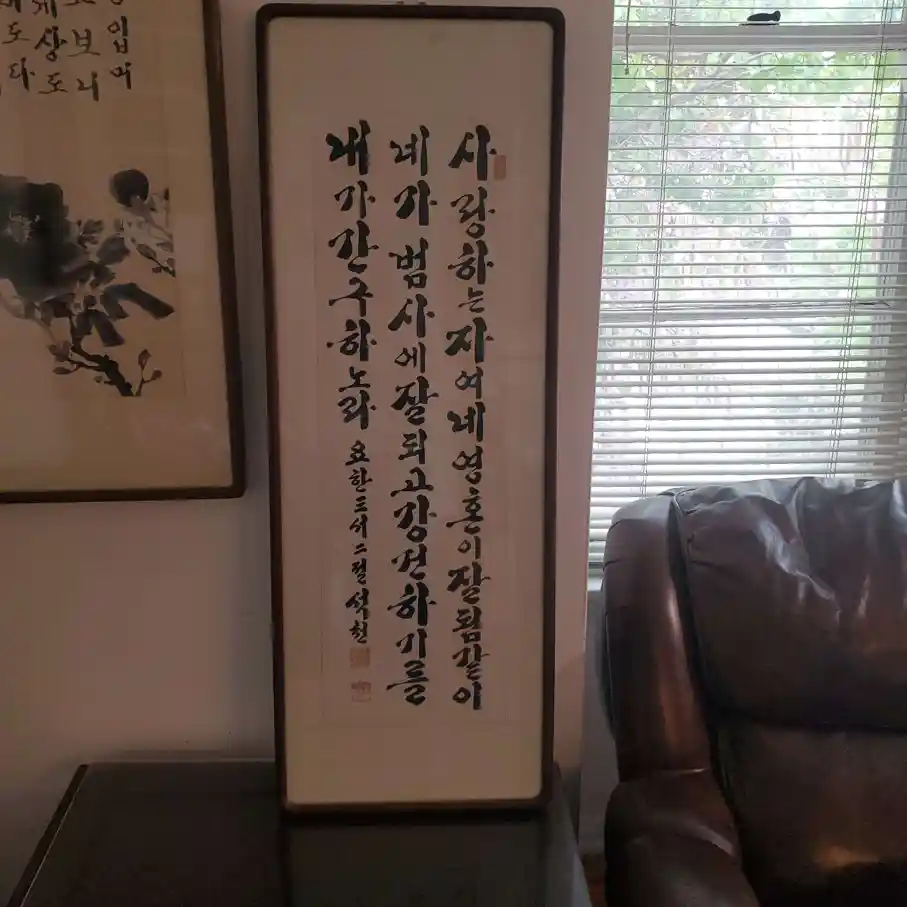 사랑하는자여네영혼이잘됨같이
네가범사에잘되고강건하기를
내가간구하노라 요한三서二절 석천
입며
보리
상도
도다